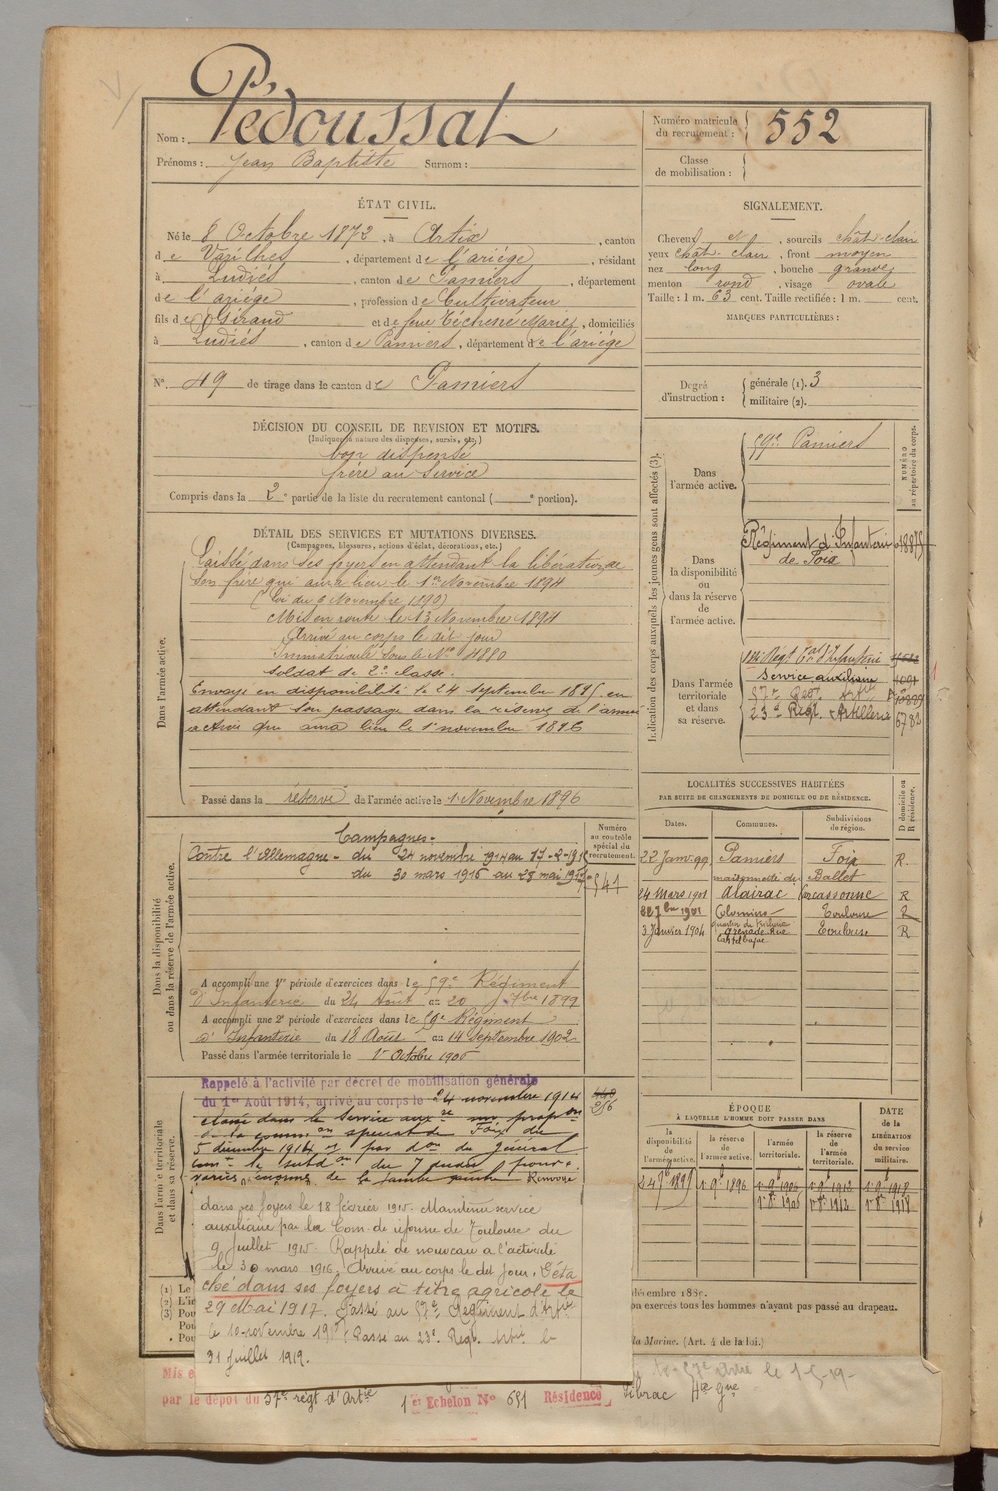 Nom : Pédoussat
Prénoms : Jean Baptiste Surnom :
Numéro matricule du recrutement : 552
Classe de mobilisation :
ÉTAT CIVIL.
Né le 8 Octobre 1872, à Artix, canton
de Varilhes, département de l'ariége, résidant
à Ludiés, canton de Pamiers, département
de l'ariége, profession de Cultivateur
fils de Giraud et de feue Marie, domiciliés
à Ludiés, canton de Pamiers, département de l'ariége
N° 49 de tirage dans le canton de Pamiers
SIGNALEMENT.
Cheveux et, sourcils chât-clair
yeux chât-clair, front moyen
nez long, bouche grande
menton rond, visage ovale
Taille : 1 m. 63 cent. Taille rectifiée : 1 m. cent.
MARQUES PARTICULIÈRES :
Degré d'instruction : générale (1). 3
militaire (2).
DÉCISION DU CONSEIL DE REVISION ET MOTIFS.
(Indiquer la nature des dispenses, sursis, etc.)
bon dispensé
frère au service
Compris dans la 2e partie de la liste du recrutement cantonal ( e portion).
DÉTAIL DES SERVICES ET MUTATIONS DIVERSES.
(Campagnes, blessures, actions d'éclat, décorations, etc.)
Dans l'armée active.
Laissé dans ses foyers en attendant la libération de
son frère qui aura lieu le 1er Novembre 1894
(Loi du 6 Novembre 1890)
Mis en route le 13 Novembre 1894
Arrivé au corps le dit jour
Immatriculé sous le No 4880
Soldat de 2e classe.
Envoyé en disponibilité le 24 septembre 1895 en
attendant son passage dans la réserve de l'armée
active qui aura lieu le 1er novembre 1896
Passé dans la réserve de l'armée active le 1er Novembre 1896
Indication des corps auxquels les jeunes gens sont affectés (3).
NUMÉRO au répertoire du corps.
Dans l'armée active.
59e Pamiers
Dans la disponibilité ou dans la réserve de l'armée active.
Régiment d'Infanterie
de Foix
Dans l'armée territoriale et dans sa réserve.
Service auxiliaire
57e Regt. Artie
23e Regt. Artillerie 6782
LOCALITÉS SUCCESSIVES HABITÉES
PAR SUITE DE CHANGEMENTS DE DOMICILE OU DE RÉSIDENCE.
Dates. Communes. Subdivisions de région. D domicile ou R résidence.
22 Janv. 99 Pamiers Foix R.
24 Mars 1901 Alairac Carcassonne R
1901 Colomiers Toulouse R
3 Janvier 1904 Grenade Rue Toulouse R
Dans la disponibilité ou dans la réserve de l'armée active.
Numéro au contrôle spécial du recrutement.
541
Campagnes -
Contre l'Allemagne - du 24 novembre 1914 au 17-2-1915
du 30 mars 1916 au 28 mai 1917
A accompli une 1re période d'exercices dans le 59e Régiment
d'Infanterie du 24 Août au 20 7bre 1899
A accompli une 2e période d'exercices dans le 59e Régiment
d'Infanterie du 18 Août au 14 Septembre 1902
Passé dans l'armée territoriale le 1er Octobre 1906
Dans l'armée territoriale et dans sa réserve.
Rappelé à l'activité par décret de mobilisation générale
du 1er Août 1914, arrivé au corps le 24 novembre 1914
classé dans le service auxre sur propon
de la commion spéciale de Foix du
5 décembre 1914 et par don du Général
Comt la subdon du 7 dudit pour :
varices énormes de la jambe gauche Renvoyé
dans ses foyers le 18 février 1915. Maintenu service
auxiliaire par la Com. de réforme de Toulouse du
9 juillet 1915. Rappelé de nouveau à l'activité
le 30 mars 1916. Arrivé au corps le dit jour. Déta
ché dans ses foyers à titre agricole le
29 Mai 1917. Passé au 57e Régiment d'Artie
le 10 novembre 191 Passé au 23e Regt. Artie le
31 juillet 1919.
ÉPOQUE
À LAQUELLE L'HOMME DOIT PASSER DANS
DATE de la LIBÉRATION du service militaire.
la disponibilité de l'armée active. la réserve de l'armée active. l'armée territoriale. la réserve de l'armée territoriale.
(1) Le
(2) L'ic
(3) Pou
Pou
Pou
décembre 18
on exercés tous les hommes n'ayant pas passé au drapeau.
la Marine. (Art. 4 de la loi.)
Mis e
par le dépot du 57e régt d'Artie 1er Echelon No 551 Résidence